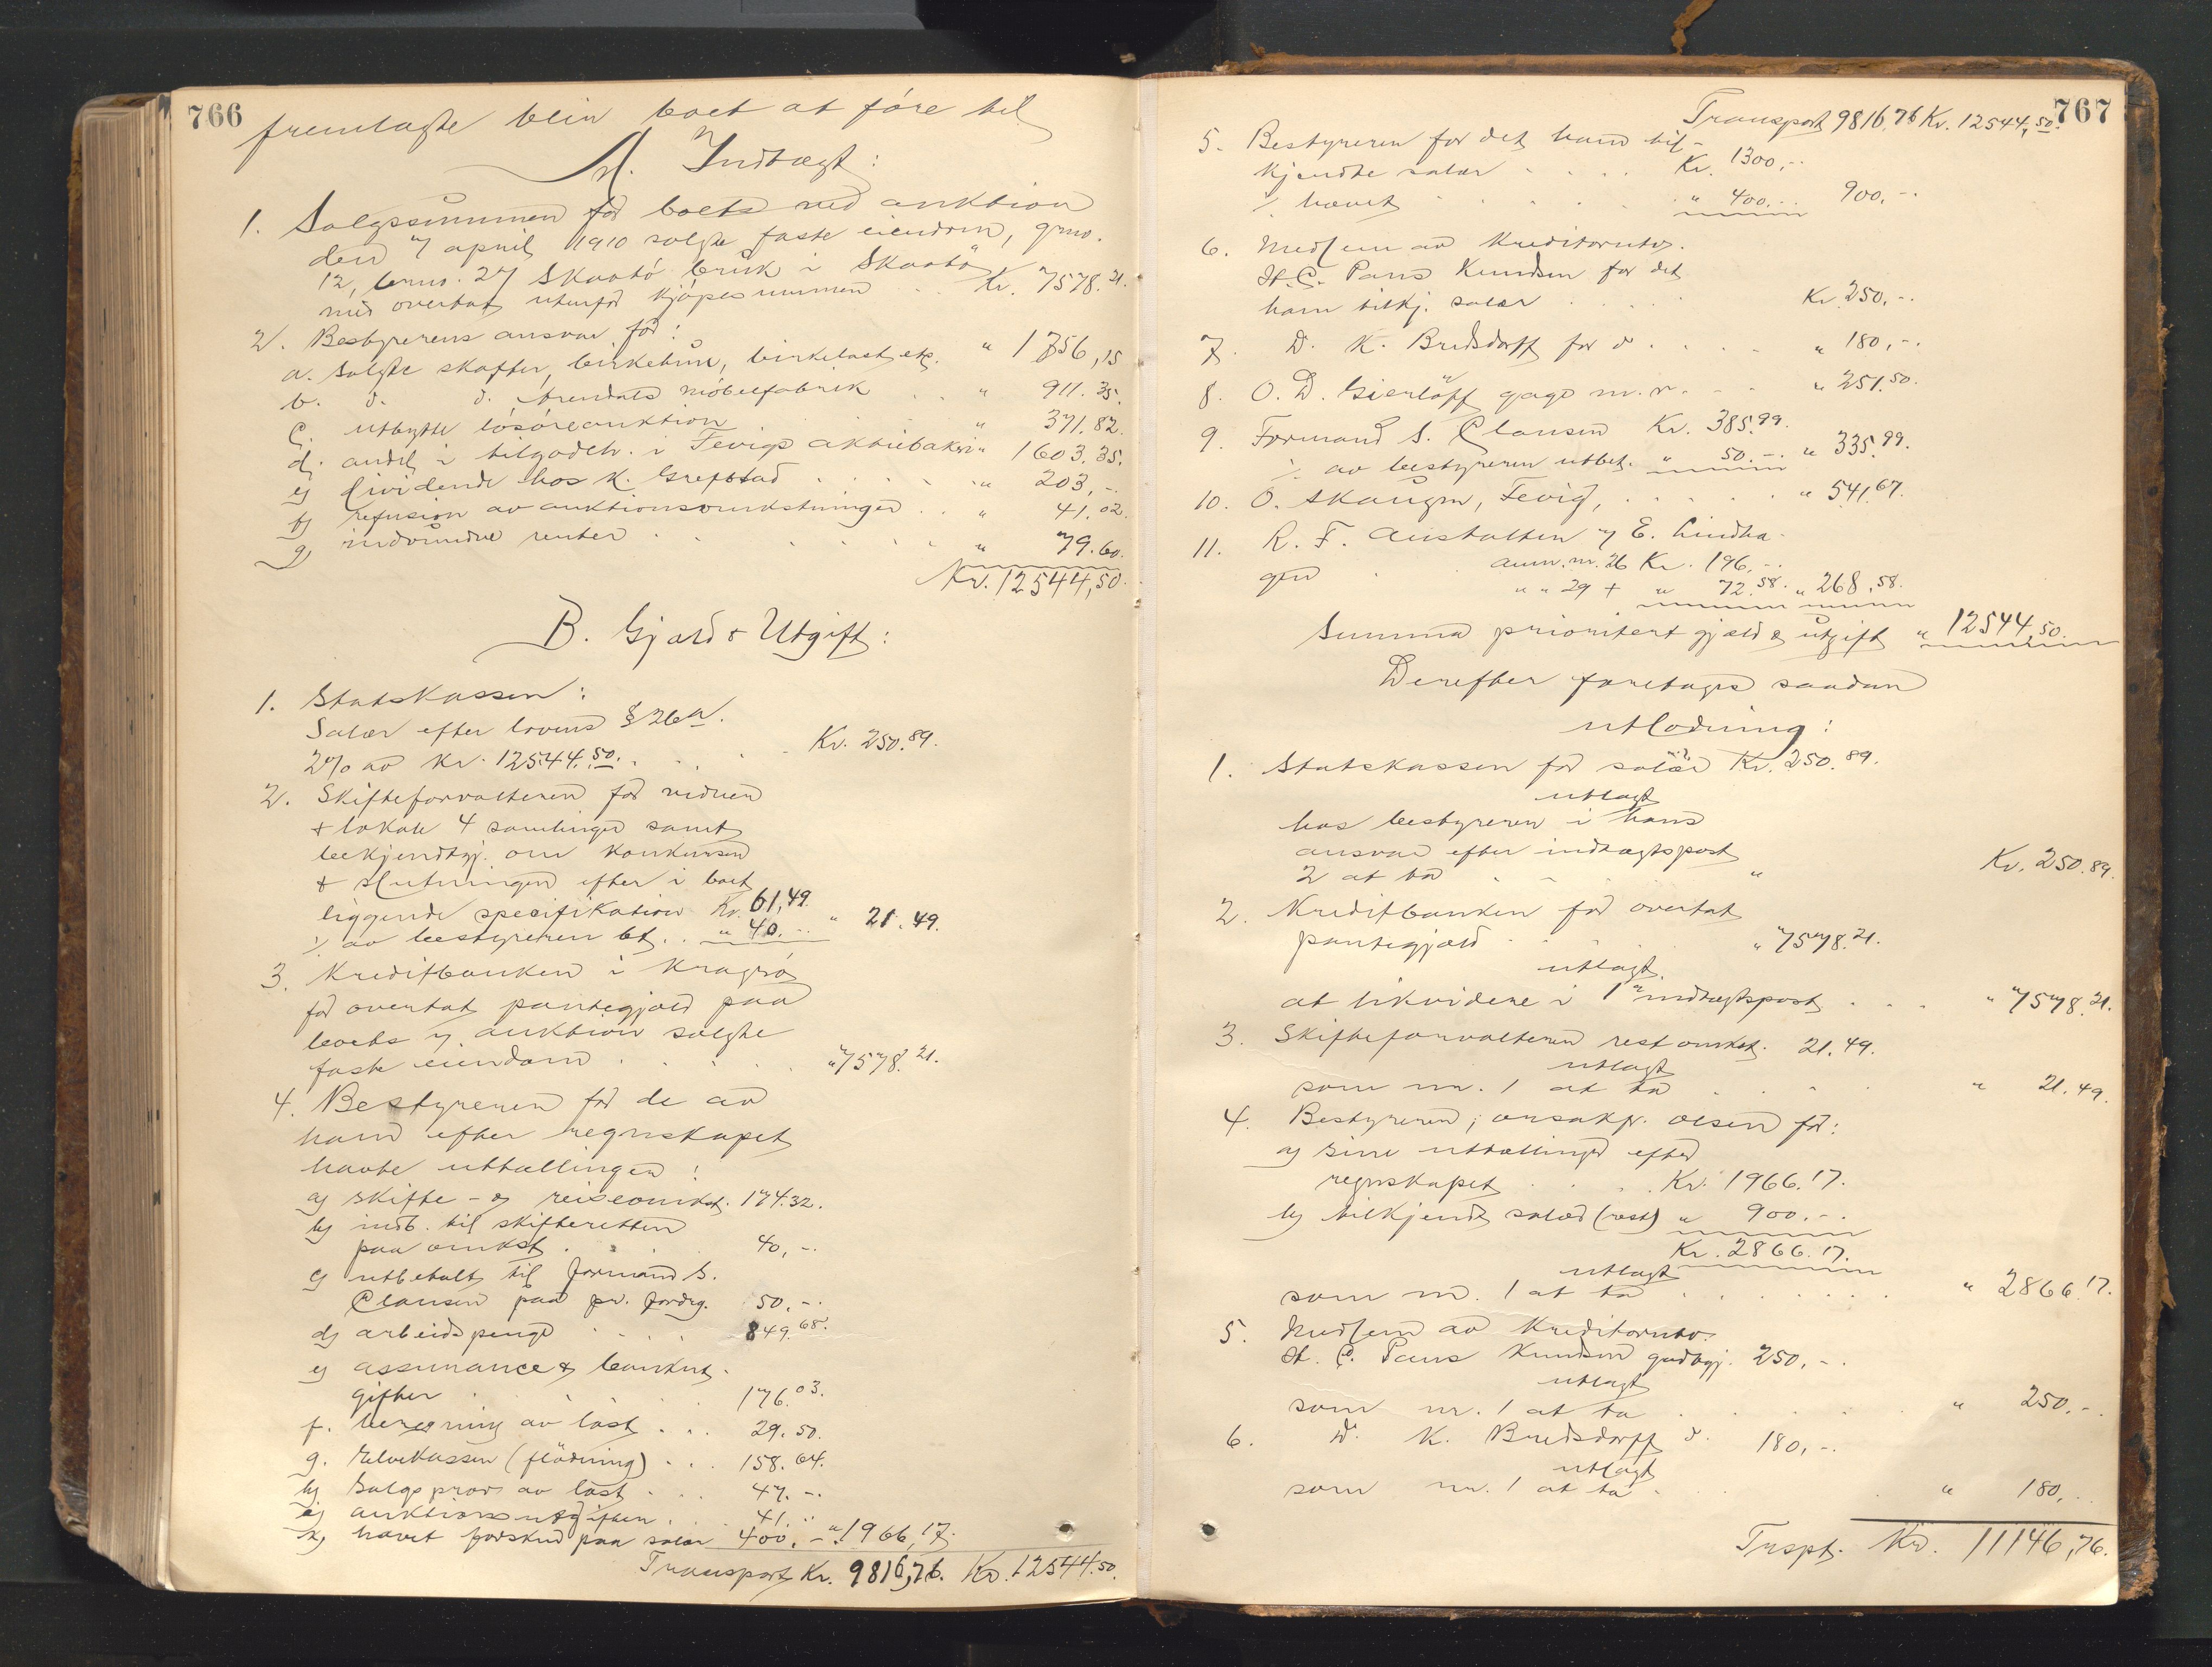 766
fremlagte blir boet at føre til
A. Indtægt:
1. Salgssummen for boets ved auktion
den 7 april 1910 solgte faste eiendom, grno.
12, brno. 27 Skaatö bruk i Skaatö
med overtat utenfor kjøpesummen .. Kr. 7578.21.
2. Bestyrerens ansvar for:
a. Solgte skafter, birkehun, birkelast etc. " 1756,15
b. d. d. Arendals møbelfabrik .. " 911.35.
c. utbytte løsøreauktion " 371.82.
d. andel i tilgodeh. i Fevigs aktiebakeri " 1603.35.
e) dividende hos K. Grefstad . . . . " 203,-.
f) refusion av auktionsomkostninger .. " 41.02.
g) indvundne renter . . . . . " 79.60.
Kr. 12544,50.
B. Gjæld & Utgift:
1. Statskassen:
Salær efter lovens § 26a.
2% av Kr. 12544.50. . . . Kr. 250.89.
2. Skifteforvalteren for
+ lokale 4 samlinger samt
bekjendtgj. om konkursen
& slutningen efter i boet
liggende specifikation Kr. 61,49.
÷ av bestyreren bet. . " 40.-. " 21.49.
3. Kreditbanken i Kragerø
for overtat pantegjæld paa
boets v. auktion solgte
faste eiendom . . . . . " 7578.21.
4. Bestyreren for de av
ham efter regnskapet
havte uttællinger:
a) skifte- og reiseomkst. 174.32.
b) indb. til skifteretten
paa omkst. . . 40,-.
c) utbetalt til formand S.
Clausen paa pr. fordrg. 50.-.
d) arbeidspenge . . . . 849.68.
e) assurance & bankut-
gifter . . . . . 176.03.
f. beregning av last . . . 29.50.
g. Elvekassen (flødning) . . . 158.64.
h) Salgsprov. av last . . . 47.-.
i) auktionsutgiften . . . 41.-
k) hævet forskud paa salær 400.- " 1966,17.
Transport Kr. 9816,76. Kr. 12544.50.
767
Transport 9816.76 Kr. 12544,50.
5. Bestyreren for det ham til-
kjendte salær . . . . Kr. 1300,-.
÷ hævet . . . . . " 400.-. 900,-.
6. Medlem av Kreditorutv.
H. C. Paus Knudsen for det
ham tilkj. salær . . . . Kr. 250,-.
7. D. K. Bredsdorff for d . . . . " 180,-.
8. O. D. Gierløff gage m.v. - - " 251.50.
9. Formand S. Clausen Kr. 385.99.
÷ av bestyreren utbet. " 50.-. " 335.99.
10. O. Skaugen, Fevig, . . . . . " 541.67.
11. R. F. Anstalten v/ E. Lindha-
gen . anm. nr. 26 Kr. 196,-.
" " 29 + " 72.58. " 268,58.
Summa prioritert gjæld & utgift " 12544,50.
Derefter foretages saadan
utlodning:
1. Statskassen for salær Kr. 250.89.
utlagt
hos bestyreren i hans
ansvar efter indtægtspost
2 at ta . . . " Kr. 250.89.
2. Kreditbanken for overtat
pantegjæld . . . . " 7578.21.
utlagt.
at likvidere i 1ste indtægtspost . . . " 7578.21.
3. Skifteforvalteren rest omkst. 21.49.
utlagt
som nr. 1 at ta . . . " 21.49.
4. Bestyreren, orsakf. Olsen for:
a) sine uttællinger efter
regnskapet . . . . Kr. 1966.17.
b) tilkjendt salær (rest) " 900.-.
Kr. 2866.17.
utlagt
som nr. 1 at ta . . . . . . " 2866.17.
5. Medlem av Kreditorutv.
H. C. Paus Knudsen godtgj. 250,-.
utlagt
som nr. 1 at ta . . . . . " 250.-.
6. D. K. Bredsdorff d. 180,-.
utlagt
som nr. 1 at ta . . . " 180,-.
Trspt. Kr. 11146,76.